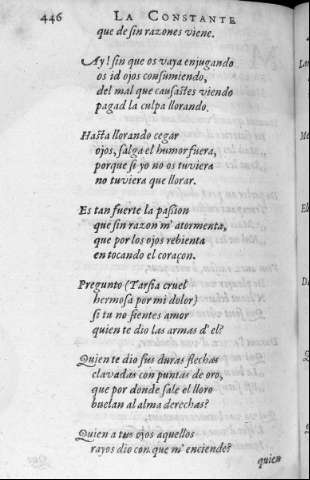 446 LA CONSTANTE
que de sin razones viene.
Ay! sin que os vaya enjugando
os id ojos consumiendo,
del mal que causastes viendo
pagad la culpa llorando.
Hasta llorando cegar
ojos, salga el humor fuera,
porque si yo no os tuviera
no tuviera que llorar.
Es tan fuerte la passion
que sin razon m' atormenta,
que por los ojos rebienta
en tocando el coraçon.
Pregunto (Tarsia cruel
hermosa por mi dolor)
si tu no sientes amor
quien te dio las armas d' el?
Quien te dio sus duras flechas
clavadas con puntas de oro,
que por donde sale el lloro
buelan al alma derechas?
Quien a tus ojos aquellos
rayos dio con que m' enciende?
quien